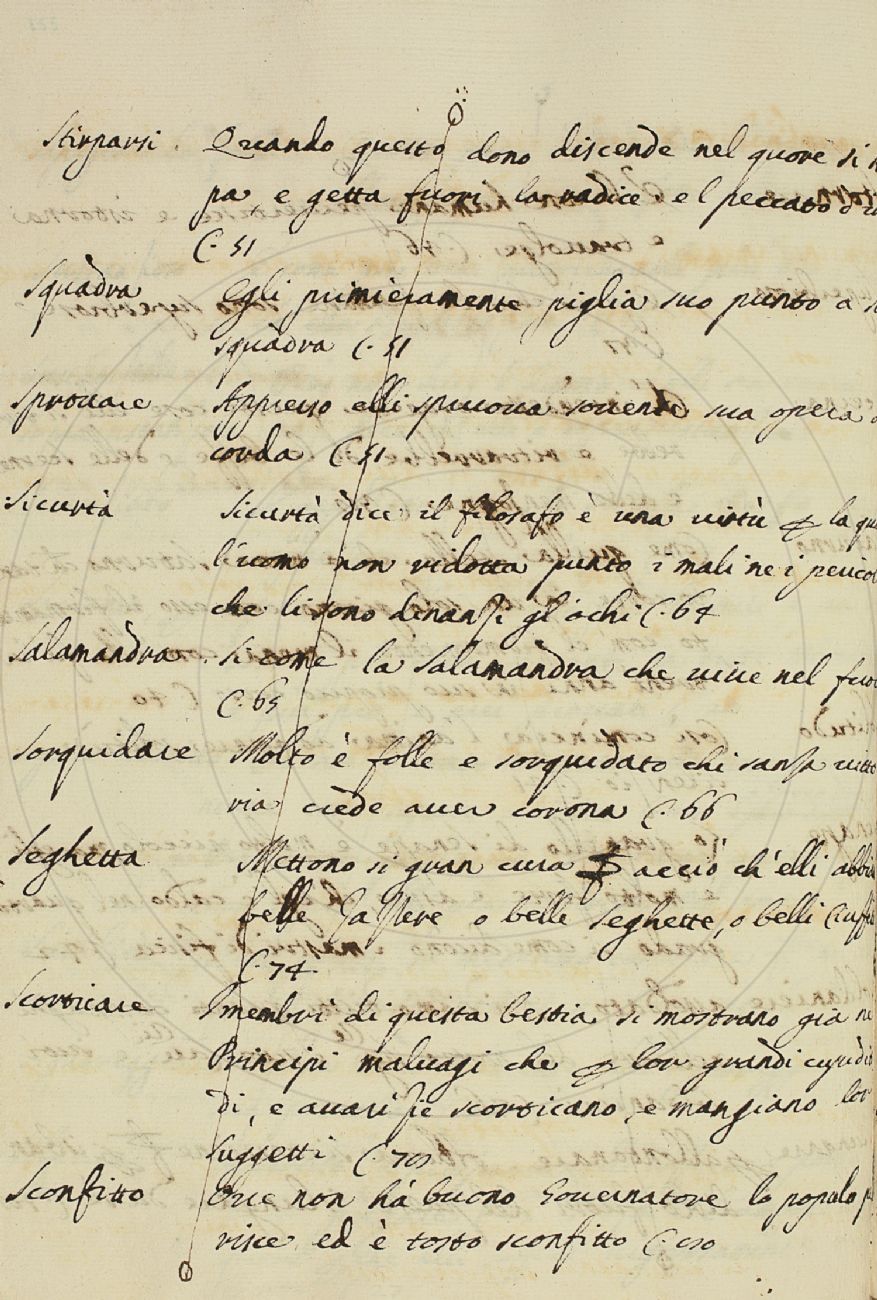 Stirparsi. Quando questo dono discende nel quore si
pa, e getta fuori la radice e'l peccato
C. 51
Squàdra Egli primieramente piglia suo punto a
squàdra C. 51
Sprovare Appresso elli spruova sovente sua opera
corda C. 51
Sicurtà Sicurtà dice il filosafo è una virtù p la
l'uomo non ridotta punto i mali ne i
che li sono dinanzi gl'ochi C. 64
Salamàndra. Sì come la Salamàndra che vive nel
C. 65
Sorquidare Molto è folle e sorquidato chi sanza
ria crède aver corona C. 66
Seghetta Mettono sì gran cura p acciò ch'elli
belle Zazzere o belle Seghette, o belli
C. 74
Scorticare I membri di questa bestia si mostrano già
Principi malvagi che p lor gràndi
di, e avarizie scorticano, e mangiano lor
suggetti C.
Sconfitto Ove non hà buono Governatore lo popolo
risce ed è tosto sconfitto C.